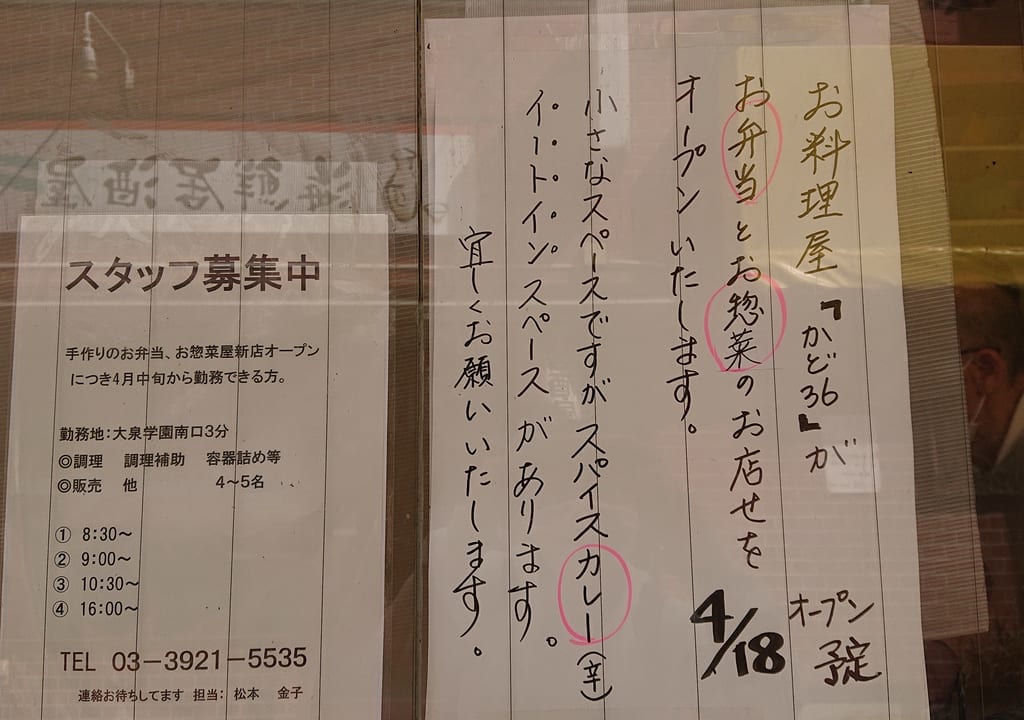 お料理屋『かど36』が
お弁当とお惣菜のお店せを
オープンいたします。
小さなスペースですが スパイスカレー(辛)
イートインスペースがあります。
宜しくお願いいたします。
4/18
オープン
予定
スタッフ募集中
手作りのお弁当、お惣菜屋新店オープン
につき4月中旬から勤務できる方。
勤務地:大泉学園南口3分
◎調理 調理補助 容器詰め等
◎販売 他 4~5名
① 8:30~
② 9:00~
③ 10:30~
④ 16:00~
TEL 03-3921-5535
連絡お待ちしてます 担当: 松本 金子
海鮮居酒屋